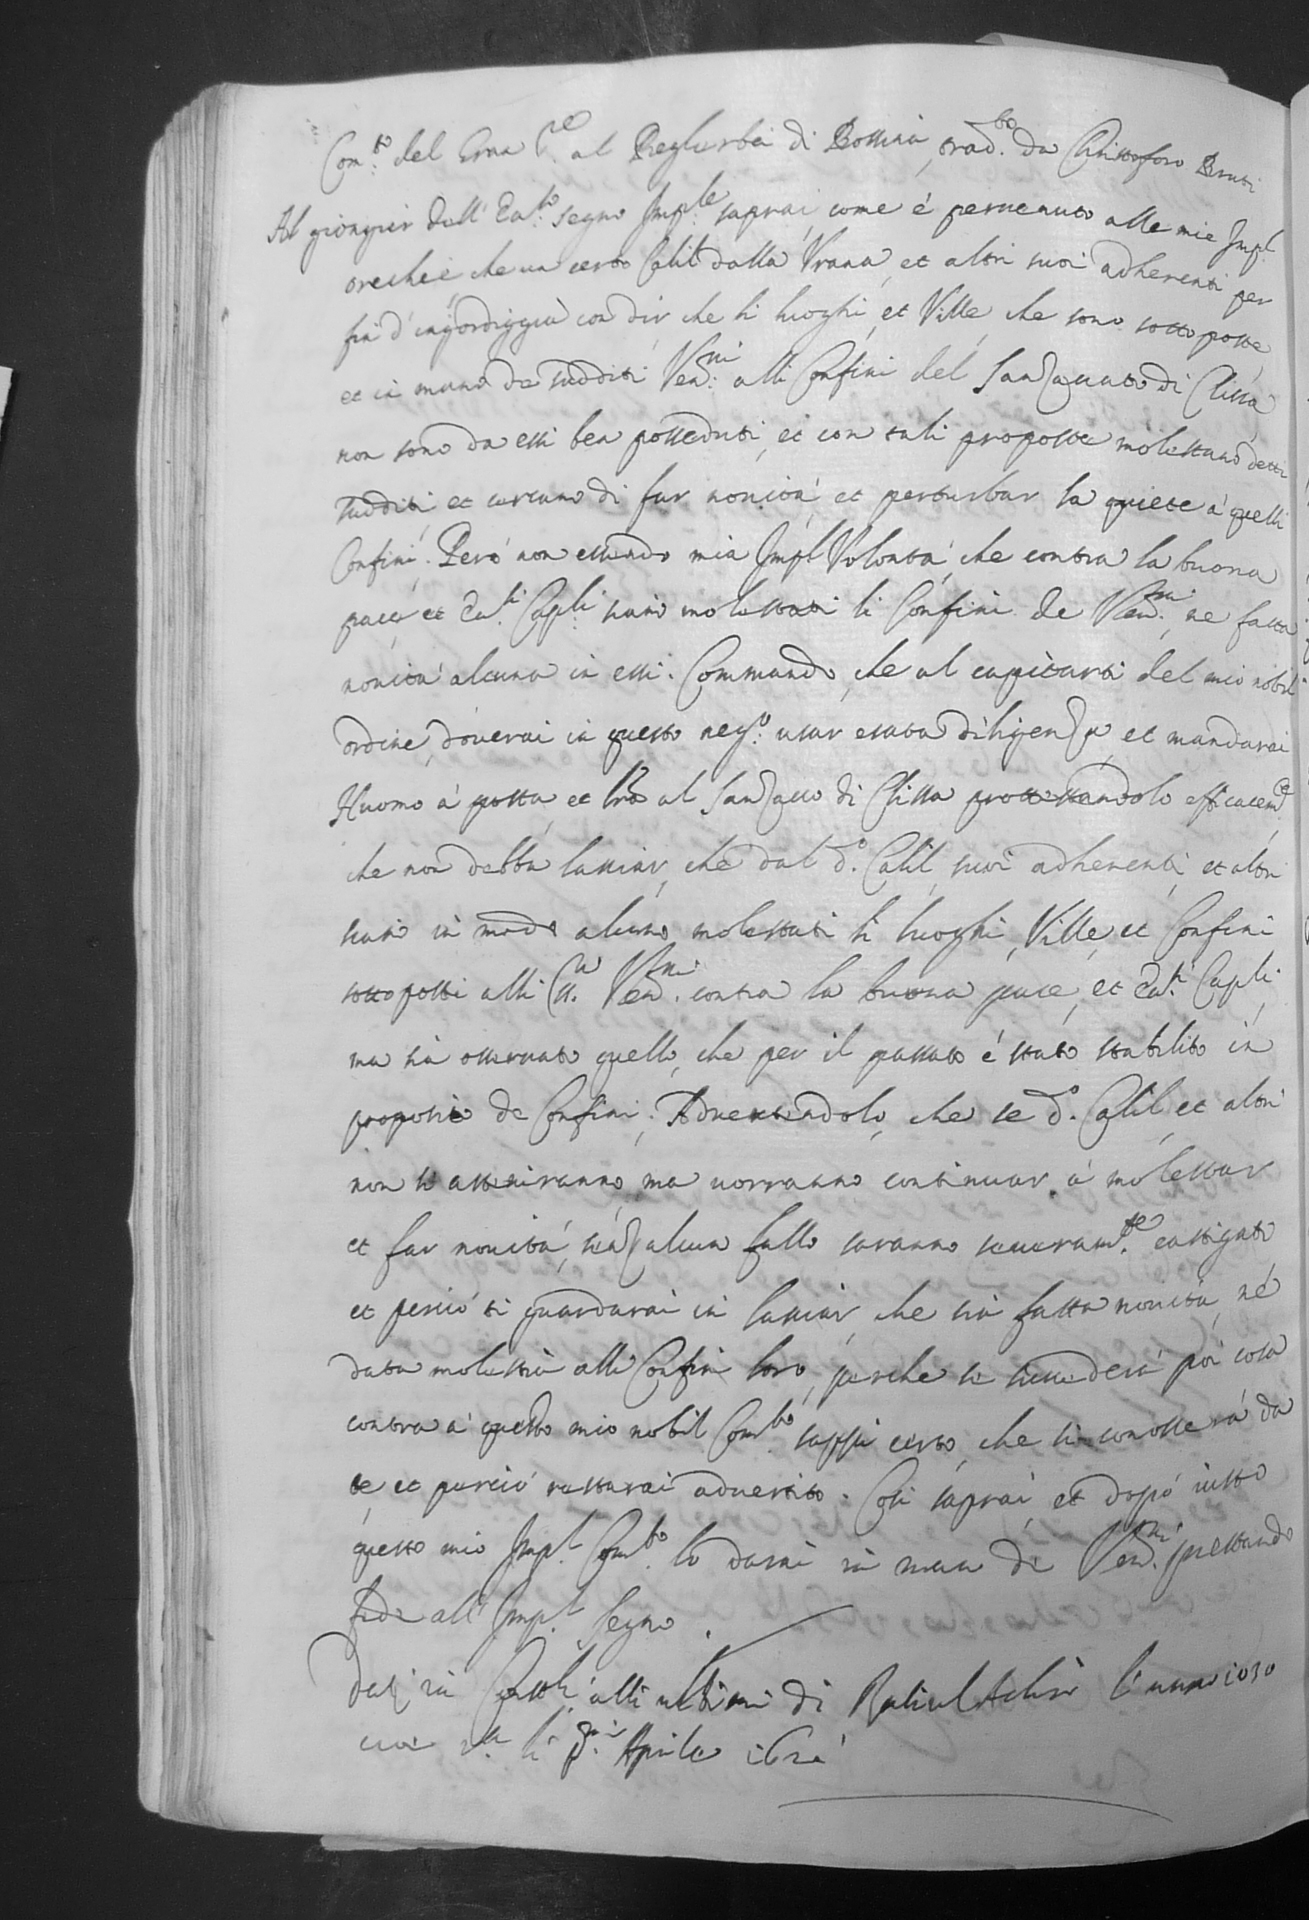 Com.to del Gran S.re al Beglerbei di Bossina, trad.to da Christoforo Bruti
Al gionger dell' Ecc.so segno Imp.le saprai, come è peruenuto alle mie Imp.l
orechie che un certo Calil dalla Vrana, et altri suoi adherenti per
fin d'ingordiggia con dir che li luoghi, et Ville, che sono sotto poste,
et in mano de sudditi Ven.ni alli Confini del Sanzaccato di Clissa
non sono da essi ben posseduti, et con tali proposte molestano detti
sudditi et cercano di far nouità, et perturbar la quiete à quelli
Confini. Però non essendo mia Imp.l Volontà, che contra la buona
pace, et Ecc.si Cap.li siano molestati li Confini de Ven.ni, ne fatta
nouità alcuna in essi. Commando, che al capitarti del mio nobil
ordine, douerai in questo neg.o usar esata diligenza, et mandarai
Huomo à posta, et l're al Sanzacco di Clissa protestandolo efficacem.te
che non debba lassiar, che dal d.o Calil, suoi adherenti, et altri
siano in modo alcuno molestati li luoghi, Ville, et Confini
sotto posti alli SS.ri Ven.ni contra la buona pace, et Ecc.si Cap.li,
ma sia osseruato quello, che per il passato è stato stabilito in
proposito de Confini; Aduertendolo, che se d.o Calil, et altri
non si asteniranno, ma uorranno continuar à molestar
et far nouità, senz'alcun fallo saranno seueram.te castigati
et perciò ti guardarai in lassiar, che sia fatta nouità, nè
data molestia alli Confini loro, perche se succederà poi cosa
contra à questo mio nobil Com.to sappi certo, che si conoscerà da
te, et perciò restarai aduertito. Così saprai, et dopò uisto
questo mio Imp.l Com.to lo darai in man de Ven.ni prestando
fede all' Imp.l segno.
Dat in Const.li alli ultimi di l'anno 1030
cioè li Aprile 1621